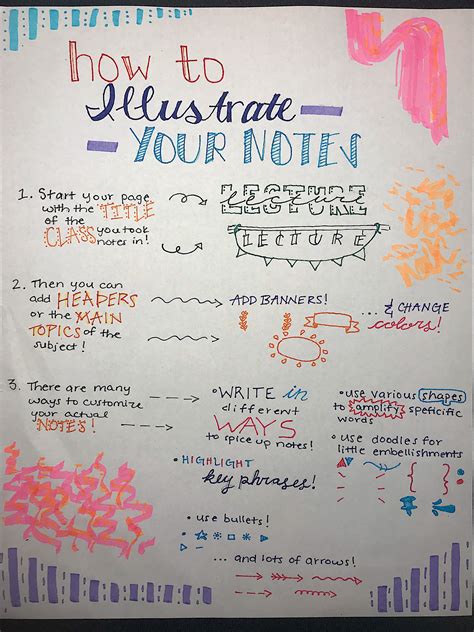 HOW TO
Illustrate
YOUR NOTES
1. Start your page
with the TITLE
of the
CLASS you took
notes in!
LECTURE
lecture
LECTURE
2. Then you can
add HEADERS
or the MAIN
TOPICS of the
subject!
ADD BANNERS!
... & CHANGE
colors!
3. There are many
ways to customize
your actual
NOTES!
• WRITE in
different
WAYS
to spice up notes!
• HIGHLIGHT
key phrases!
• use bullets!
... and lots of arrows!
• use various shapes
to amplify speficific
words
• use doodles for
little embellishments